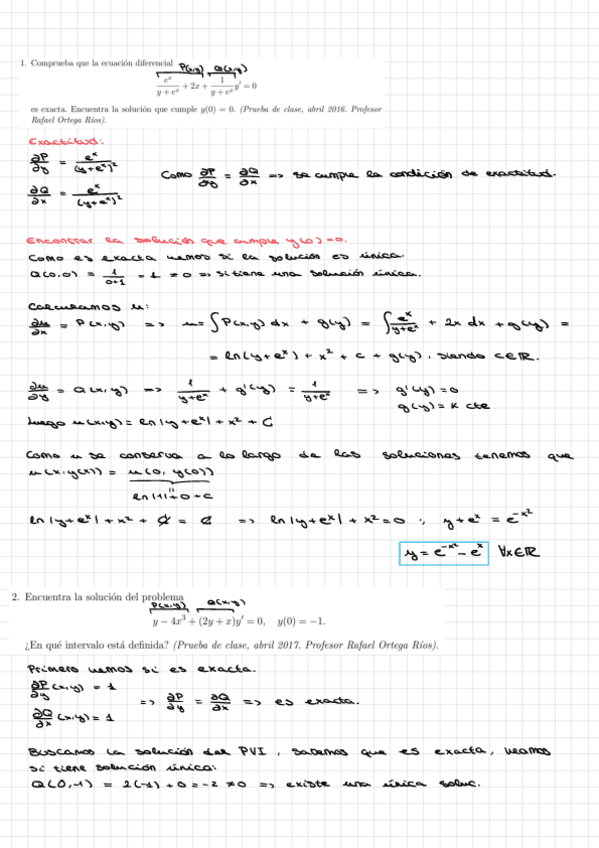 1. Comprueba que la ecuación diferencial
P(x,y) Q(x,y)
e^x/(y + e^x) + 2x + 1/(y + e^x) y′ = 0
es exacta. Encuentra la solución que cumple y(0) = 0. (Prueba de clase, abril 2016. Profesor
Rafael Ortega Ríos).
Exactitud:
∂P/∂y = e^x/(y+e^x)^2
Como ∂P/∂y = ∂Q/∂x => se cumple la condición de exactitud.
∂Q/∂x = e^x/(y+e^x)^2
Encontrar la solución que cumple y(0)=0.
Como es exacta vemos si la solución es única.
Q(0,0) = 1/(0+1) = 1 ≠ 0 => si tiene una solución única.
Calculamos u:
∂u/∂x = P(x,y) => u = ∫P(x,y)dx + g(y) = ∫ e^x/(y+e^x) + 2x dx + g(y) =
= ln(y+e^x) + x^2 + c + g(y), siendo c∈ℝ.
∂u/∂y = Q(x,y) => 1/(y+e^x) + g'(y) = 1/(y+e^x) => g'(y) = 0
g(y) = K cte
Luego u(x,y) = ln|y+e^x| + x^2 + C
Como u se conserva a lo largo de las soluciones tenemos que
u(x,y(x)) = u(0, y(0))
"
ln|1|+0+c
ln|y+e^x| + x^2 + C = C => ln|y+e^x| + x^2 = 0 ; y + e^x = e^-x^2
y = e^-x^2 - e^x ∀x∈ℝ
2. Encuentra la solución del problema
P(x,y) Q(x,y)
y − 4x^3 + (2y + x)y′ = 0, y(0) = −1.
¿En qué intervalo está definida? (Prueba de clase, abril 2017. Profesor Rafael Ortega Ríos).
Primero vemos si es exacta.
∂P/∂y (x,y) = 1
=> ∂P/∂y = ∂Q/∂x => es exacta.
∂Q/∂x (x,y) = 1
Buscamos la solución del PVI, sabemos que es exacta, veamos
si tiene solución única:
Q(0,-1) = 2(-1) + 0 = -2 ≠ 0 => existe una única soluc.